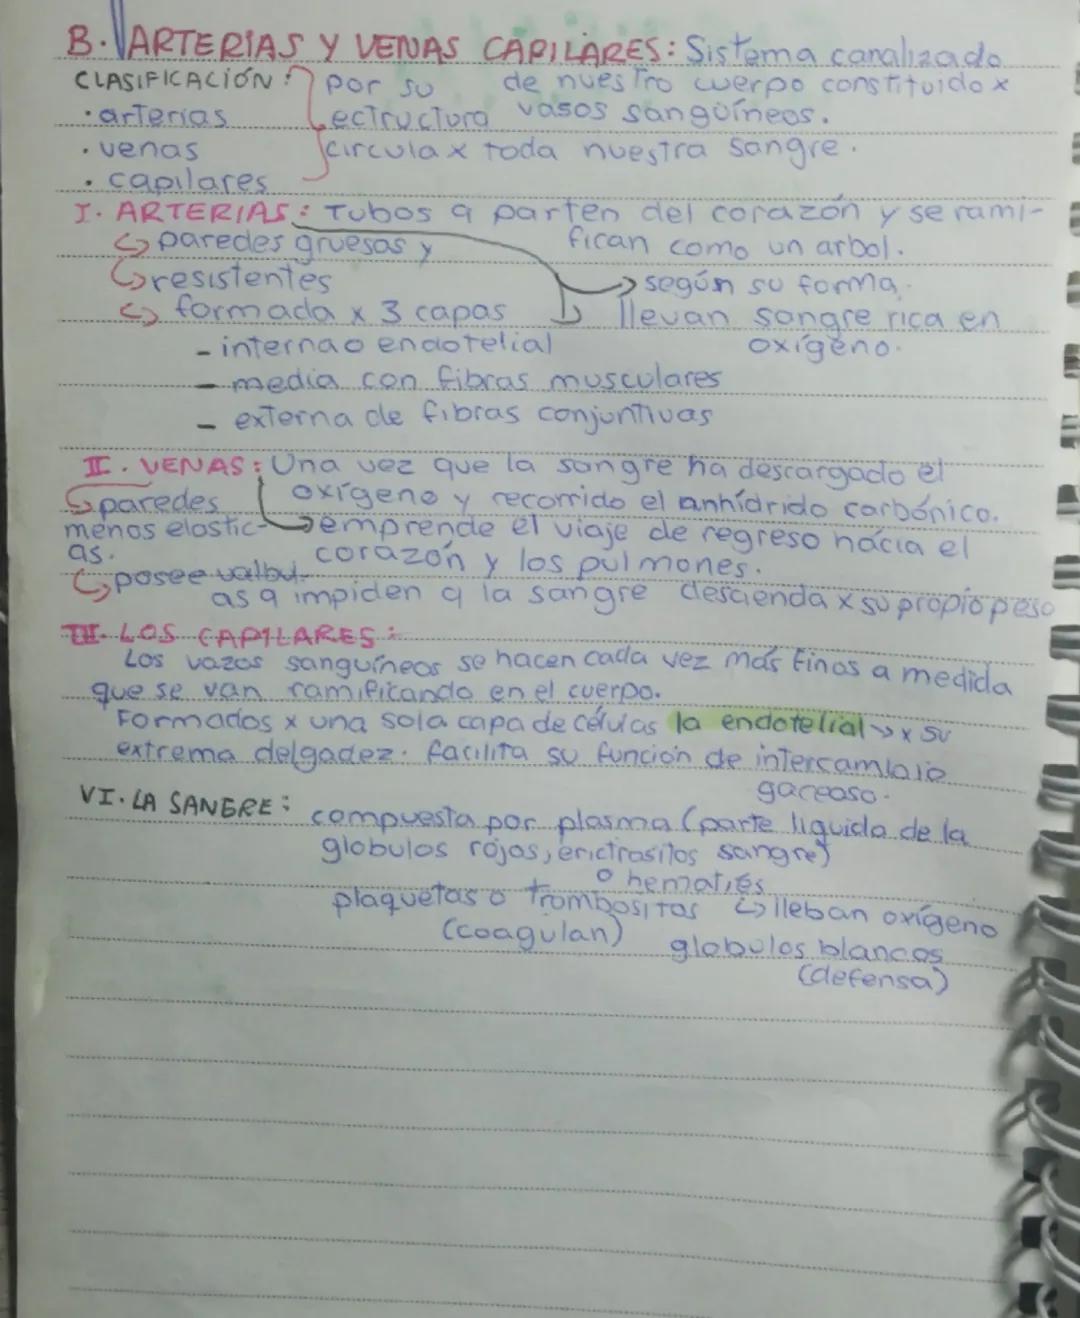 B. ARTERIAS Y VENAS CAPILARES: Sistema canalizado
CLASIFICACIÓN: por su de nuestro cuerpo constituido x
· arterias ectructura vasos sanguíneos.
· venas circula x toda nuestra sangre.
· capilares
I. ARTERIAS: Tubos q parten del corazón y se rami-
↳ paredes gruesas y fican como un arbol.
↳ resistentes → según su forma.
↳ formada x 3 capas llevan sangre rica en
- interna o endotelial oxígeno.
- media con fibras musculares
- externa de fibras conjuntivas
II. VENAS: Una vez que la sangre ha descargado el
↳ paredes oxígeno y recorrido el anhídrido carbónico.
menos elastic- → emprende el viaje de regreso hacia el
as. corazón y los pulmones.
↳ posee valbul-
as q impiden q la sangre descienda x su propio peso
III. LOS CAPILARES:
Los vazos sanguíneos se hacen cada vez más finos a medida
que se van ramificando en el cuerpo.
Formados x una sola capa de células la endotelial → x su
extrema delgadez. facilita su función de intercambio
gaceoso.
VI. LA SANGRE: compuesta por plasma (parte liquida de la
globulos rojos, erictrasitos sangre)
o hematíes
plaquetas o trombositos ↳ lleban oxígeno
(coagulan) globulos blancos
(defensa)